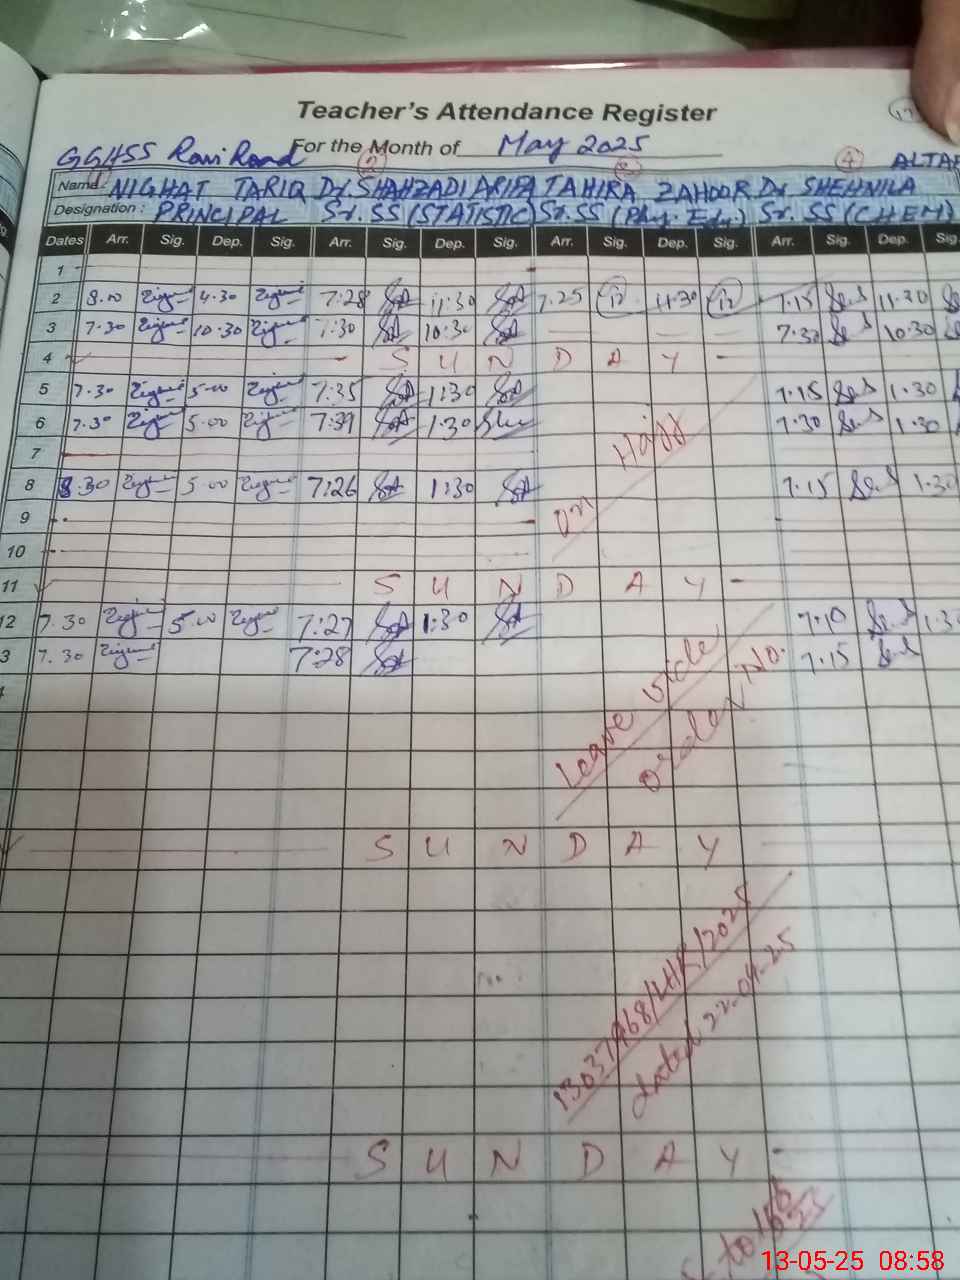 Teacher's Attendance Register
17
GGHSS Ravi Road For the Month of May 2025
1 2 3 4 ALTAF
Name: NIGHAT TARIQ Dr. SHAHZADI ARIFA TAHIRA ZAHOOR Dr SHEHNILA
Designation: PRINCIPAL Sr. SS (STATISTIC) Sr. SS (Phy. Edu) Sr. SS (CHEM)
Dates Arr. Sig. Dep. Sig. Arr. Sig. Dep. Sig. Arr. Sig. Dep. Sig. Arr. Sig. Dep. Sig.
1
2 8.00 4.30 7:28 11:30 7.25 12 11.30 12 7.15 11.30
3 7.30 10.30 7:30 10:30 7.30 10.30
4 S U N D A Y
5 7.30 5.00 7:35 1:30 7.15 1.30
6 7.30 5.00 7:39 1:30 7.30 1.30
7
8 8.30 5.00 7:26 1:30 7.15 1.30
9
10
on Hajj
11 S U N D A Y
12 7.30 5.00 7:27 1:30 7.10 1.30
3 7.30 7:28 7.15
Leave vide
order No.
S U N D A Y
/LHR/2025
dated 22-04-25
S U N D A Y
13-05-25 08:58